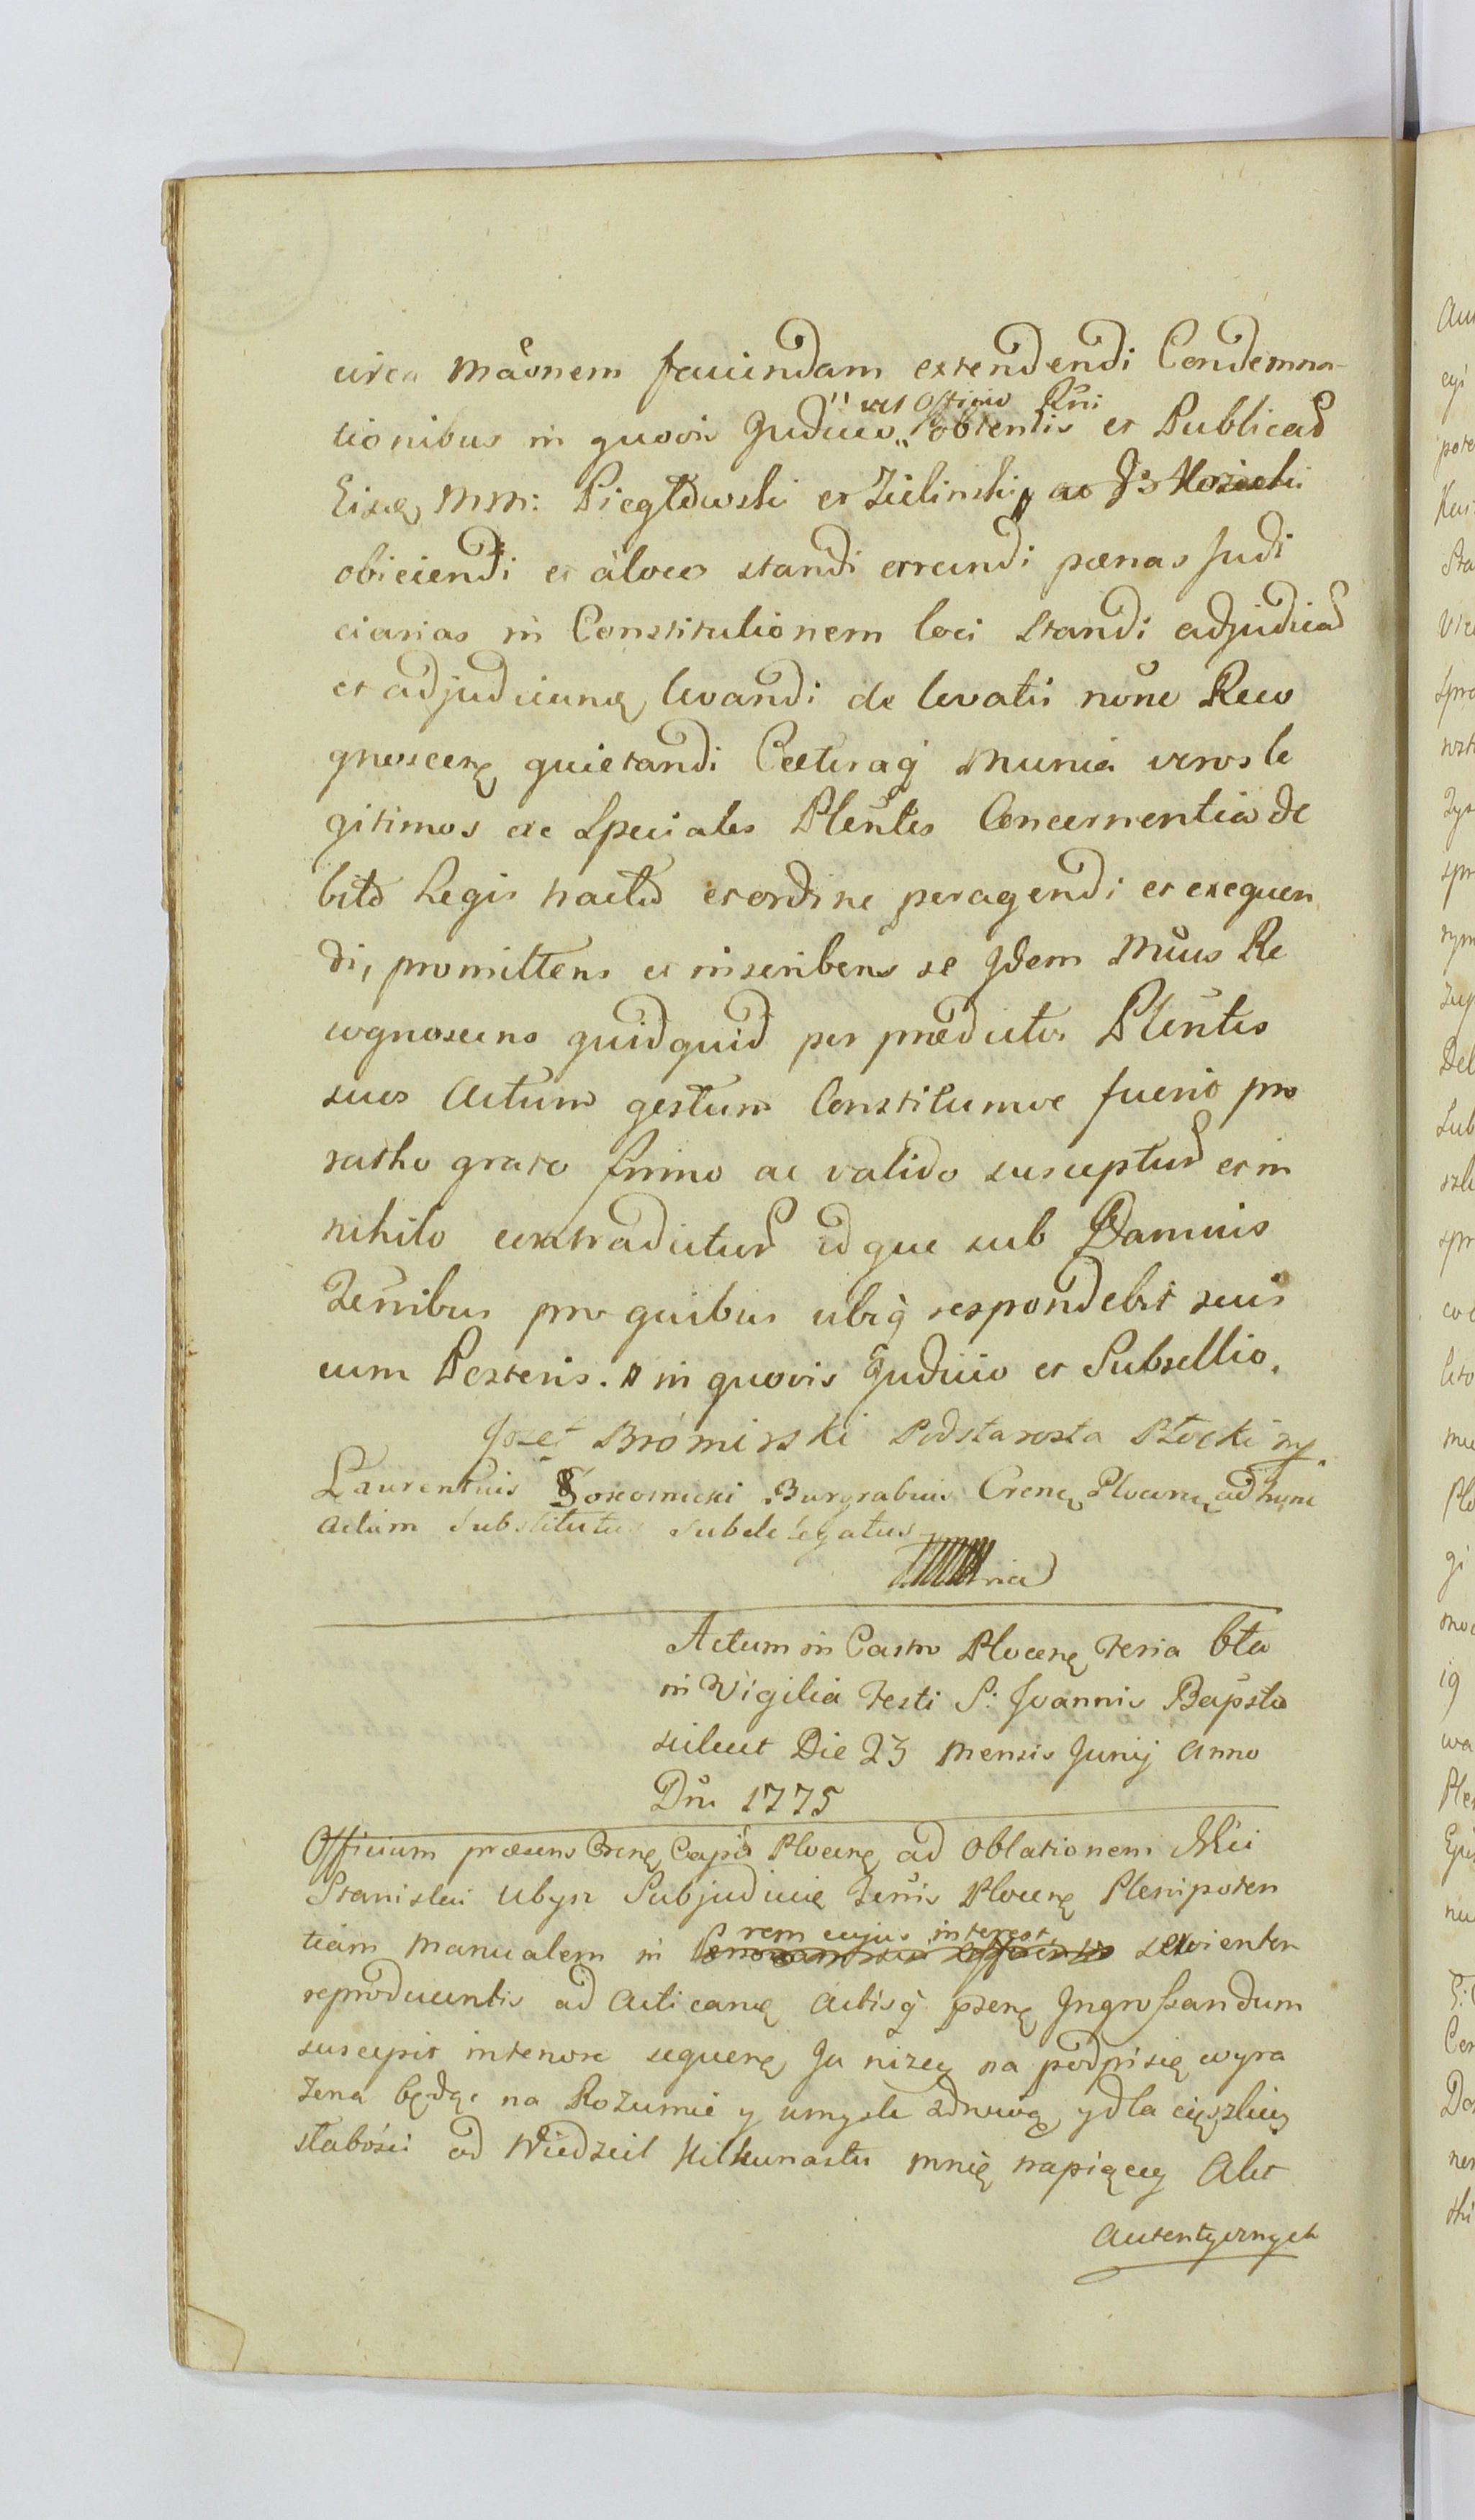 circa mãonem faciendam extendendi Condemna-
tionibus in quovis Judicio „ vel Officio Rni „ obtentis et Publicad
Eisdę Mm: Piegłowski et Zielinski, ac
obiciendi et à loco standi arcendi pœnas Judi
ciarias in Constitutionem loci standi adjudicad
et adjudicanę levandi de levatis none Reco
gnoscenę quietandi Cæteraq̀ munia veros le
gitimos ac Speciales Plentes Concernentia de
bito Legis tractu et ordine peragendi et exequen
di, promittens et inscribens se Jdem Mcus Re
cognoscens quidquid per prædictos Plentes
suos Actum gestum Constitumve fuerit pro
ratho grato firmo ac valido suscepturꝰ et in
nihilo contradicturꝰ id que sub Damnis
Ternibus pro quibus ubiq̀ respondebit suis
cum Posteris. in quovis Judicio et Subsellio.
Jozef Bromirski Podstarosta Płocki mp
Laurentius Burgrabius Crenę Plocenę ad hunc
Actum Substitutus Subdelegatus
mia
Actum in Castro Plocenę Feria 6ta
in Vigilia Festi S: Joannis Bapsta
scilicet Die 23 Mensis Junij Anno
Dni 1775
Officium præsens Crenę Capis Plocenę ad Oblationem Mci
Stanislai Ubysz Subjudicie Terris Plocenę Plenipoten
tiam Manualem in rem cujus interest servientem
reproducentis ad Acticanę Actisq̀ pserę Jngrossandum
suscepit in tenore sequenę Ja nizey na podpisię wyra
zena będąc na Rozumie y umysle zdrową, y dla cięszkiey
słabości od Niedziel kilkunastu mnię trapiącey Akt
Autentycznych